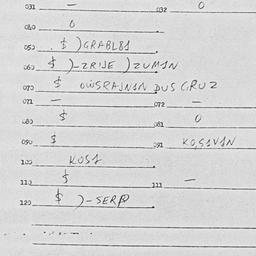 031 — 032 0
040 0
050 $ )GRABLS1
060 $ )-ZRIJE )ZUM1N
070 $ DUS CRUZ
071 — 072 —
080 $ 081 0
090 $ 091 KOS1V1N
100 KOS1
110 $ 111 —
120 $ )-SERP